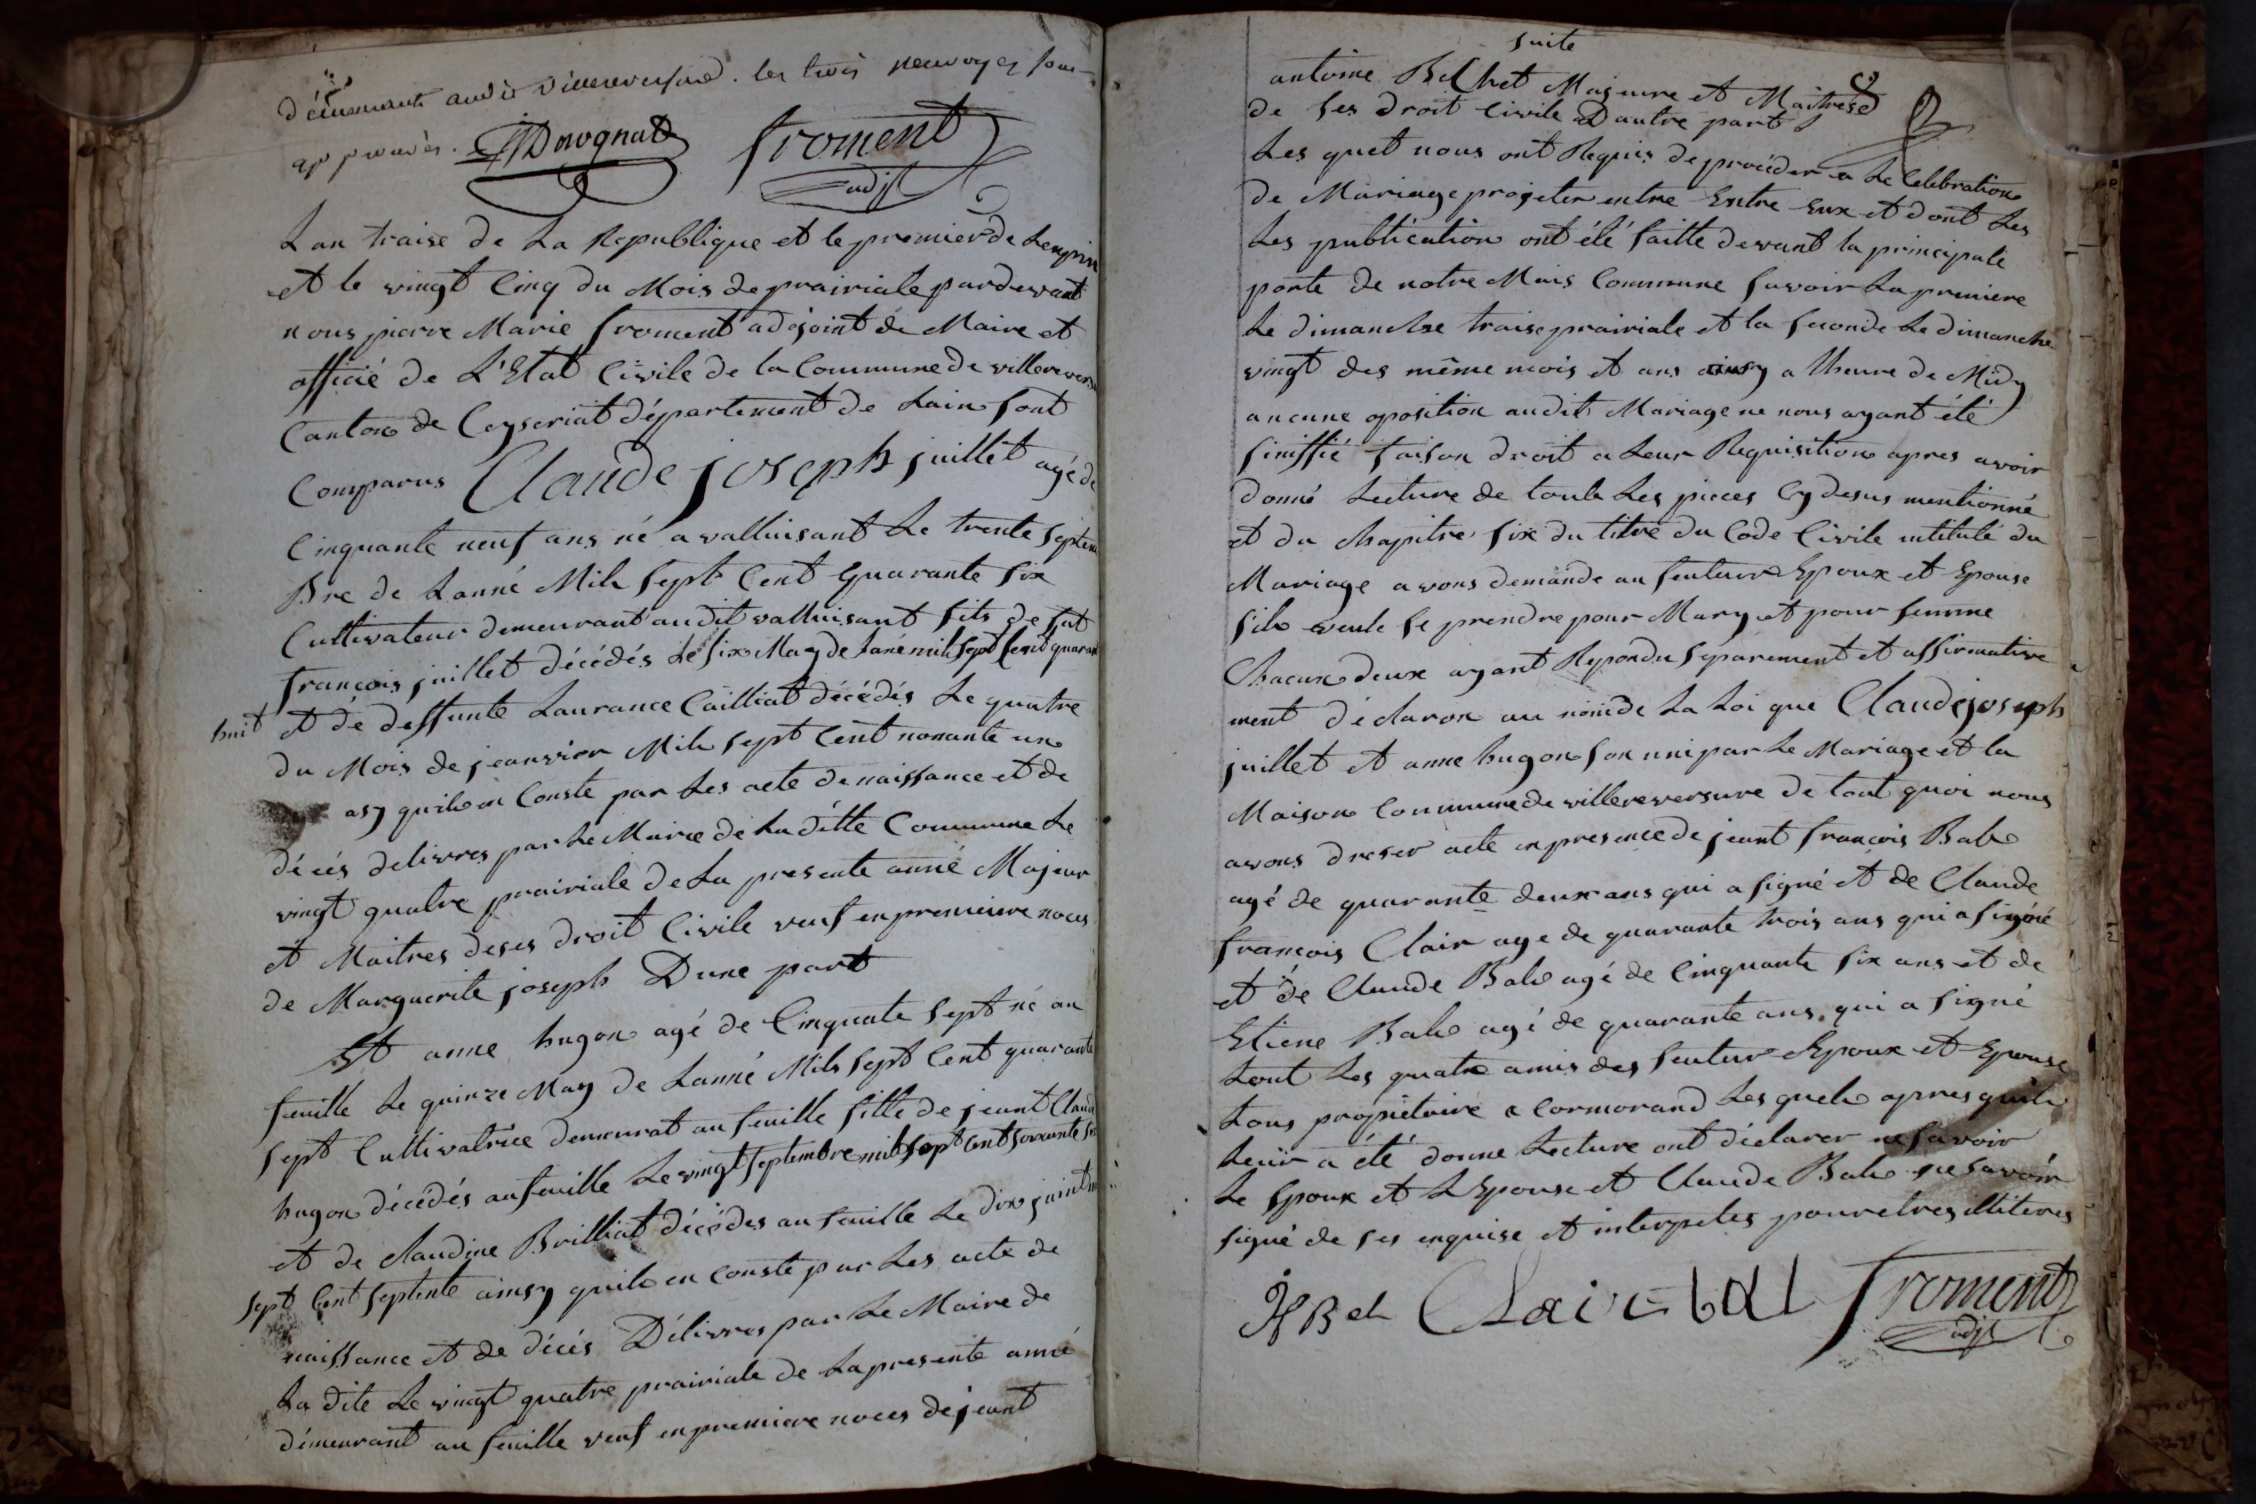 démeurante audit Villereversure. les trois renvoyez sous
approuvés. Dovognat froment
adjt
Lan traise de La Republique et le premier de Lempire
et le vingt Cinq du Mois de prairiale pardevant
nous pierre Marie froment adejoint de Maire et
officié de L'Etat Civile de la Commune de villerevers
Canton de Ceyseriat département de Lain sont
Comparus Claude joseph juillet agé de
Cinquante neuf ans né a valluisant Le trente septem
Bre de Lanné Mile sept Cent quarante six
Cultivateur demeurant audit valluisant fils de fut
françois juillet décédés Le six May de Lané mile sept Cent quaran
huit et de deffunte Laurance Cailliat décédés Le quatre
du Mois de jeanvier Mile sept Cent nonante un
asy quile en Conste par Les acte de naissance et de
décés delivres par Le Maire de La ditte Commune Le
vingt quatre prairiale de La presente année Majeur
et Maitres de ses droit Civile veuf en premiere noces
de Marguerite joseph Dune part
Et anne hugon agé de Cinquate sept né au
feuille Le quinze May de Lanné Mile sept Cent quarante
sept Cultivatrice demeurat au feuille fille de jeant Claud
hugon décédés au feuille Le vingt septembre mile sept Cent soixante
et de claudine Brilliat décédes au feuille Le dix juint
sept Cent septente ainsy quile en conste par Les acte de
naissance et de décés Délivres par Le Maire de
La dite Le vingt quatre prairiale de La presente anné
démeurant au feuille veuf en premiere noces de jeant
suite
antoine Bel chet Majeure et Maitrese
de ses droit Civile Dautre part
Les quet nous ont Requis de procéder a Le Celebration
de Mariage projeter entre Entre Eux et dont Les
Les publication ont été faitte devant la principale
porte de notre Mais Commune savoir La premiere
Le dimanche traise prairiale et la seconde Le dimanche
vingt des même mois et ans ainsy a lheure de Midy
aucune oposition audit Mariage ne nous ayant été
siniffié faison droit a Leur Requisition apres avoir
donné Lecture de toute Les pieces Cy desus mentionné
et du chapitre six du titre du Code Civile intitulé du
Mariage avons demande au feuture Epoux et Epouse
sile veule se prendre pour Mary et pour femme
Chacun deux ayant Repondu séparement et affirmative
ment déclaron au nom de La Loi que Claude joseph
juillet et anne hugon son uni par Le Mariage et la
Maison Commune de villereversure de tout quoi nous
avons dreser acte en presence de jeant françois Bale
agé de quarante deux ans qui a signé et de Claude
françois Clair age de quarante trois ans qui a signé
et de Claude Bale agé de Cinquante six ans et de
Etiene Bale agé de quarante ans qui a signé
tout Les quatre amis des feuture Epoux et Epouse
tous propiétaire a Cormorand Les quele apres quile
Leur a été donne Lecture ont déclarer ne savoir
Le Epoux et LEpouse et Claude Bale ne savoir
signé de ses enquise et interpeles pour etres illiteres
Clair bal froment
adjt